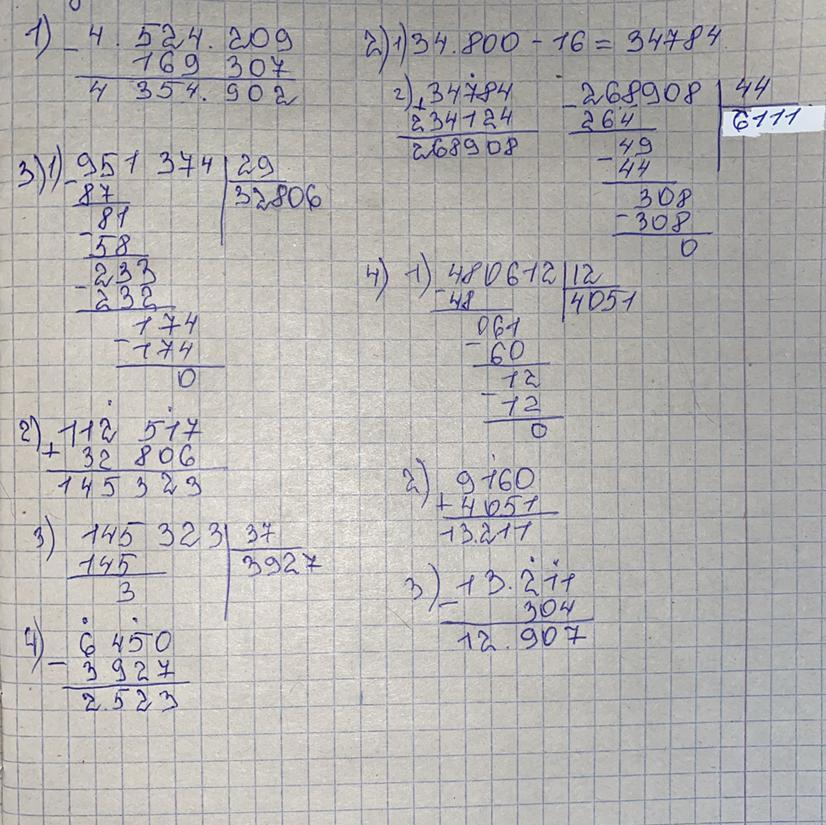 1) - 4. 524. 209
169 307
4 354. 902
2) 1) 34.800 - 16 = 34784
2) + 34784
234124
268908
- 268908 | 44
264 6111
- 49
44
308
- 308
0
3) 1) - 951 374 | 29
87 32806
- 81
58
- 233
232
174
- 174
0
2) + 112 517
32 806
145 323
3) 145 323 | 37
145 3927
3
4) - 6 450
3 927
2 523
4) 1) - 480612 | 12
48 4051
061
- 60
12
- 12
0
2) 9160
+ 4051
13.211
3) - 13.211
304
12.907